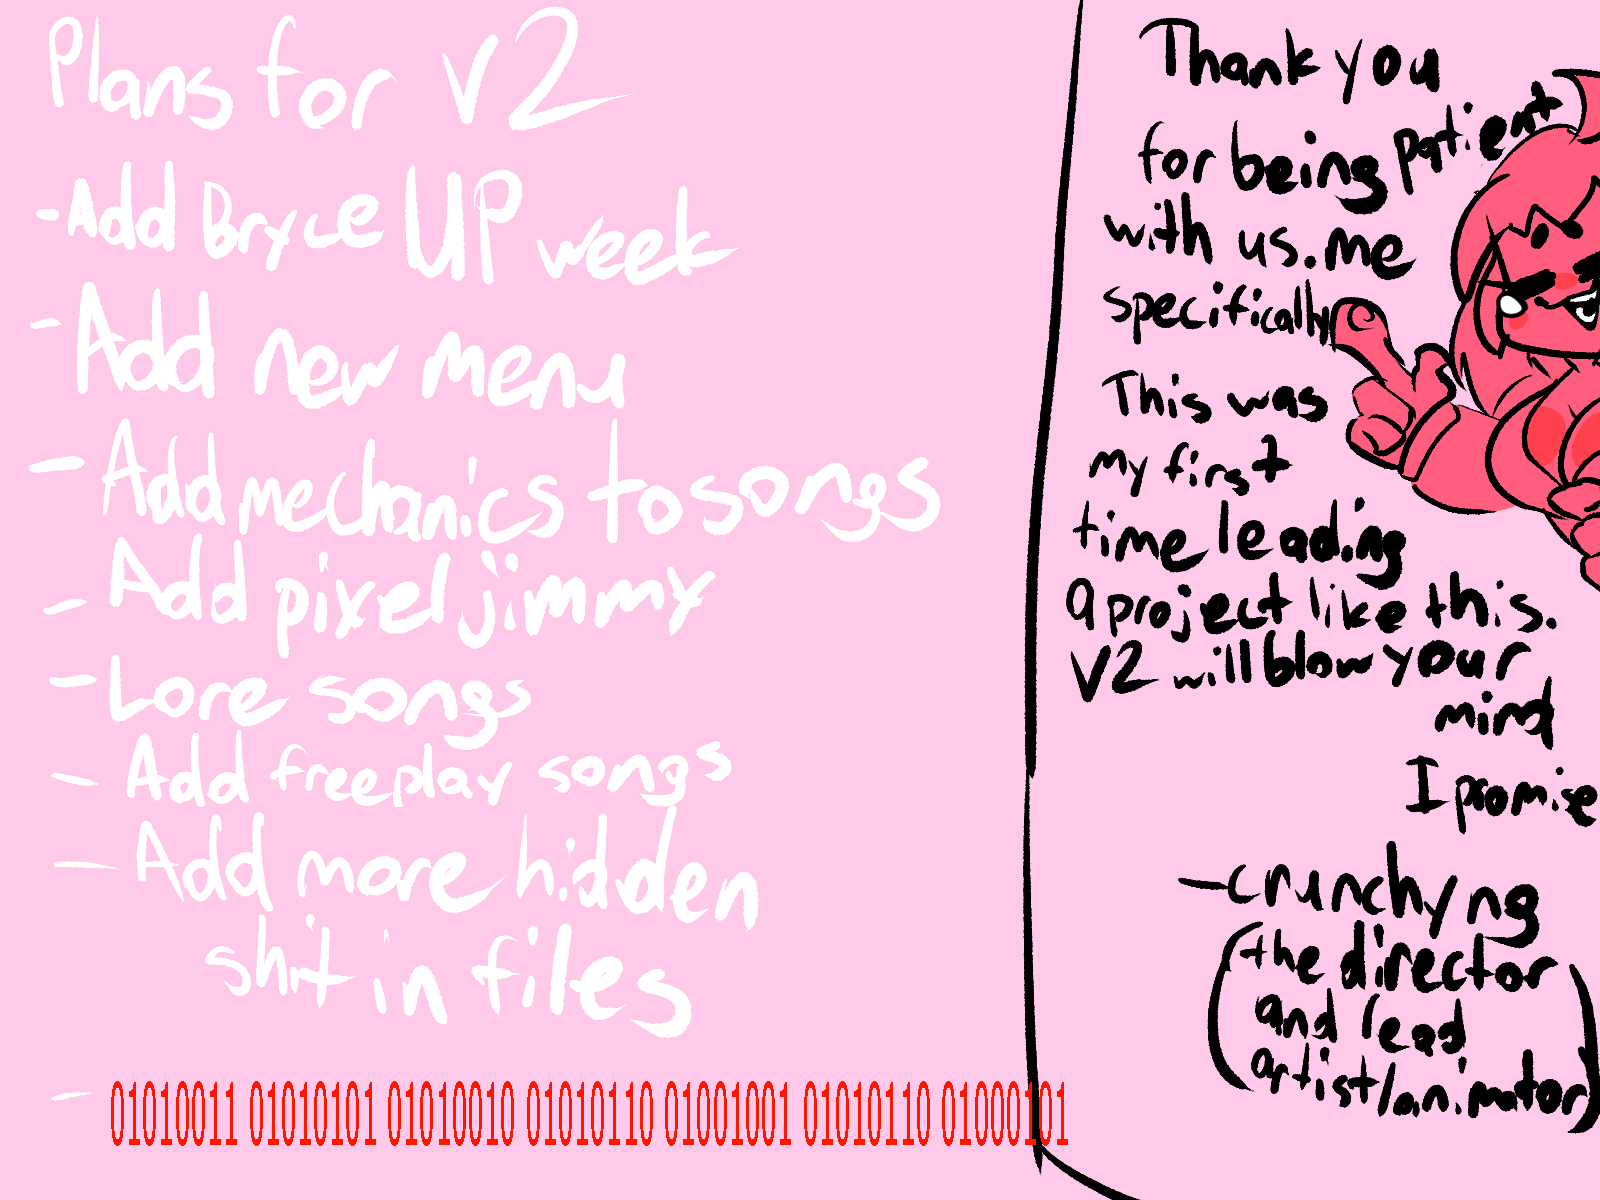 Plans for V2
- Add Bryce UP week
- Add new menu
- Add mechanics to songs
- Add pixel jimmy
- Lore songs
- Add freeplay songs
- Add more hidden
shit in files
- 01010011 01010101 01010010 01010110 01001001 01010110 01000101
Thank you
for being patient
with us. me
specifically
This was
my first
time leading
a project like this.
V2 will blow your
mind
I promise
- crunchyng
(the director
and lead
artist/animator)